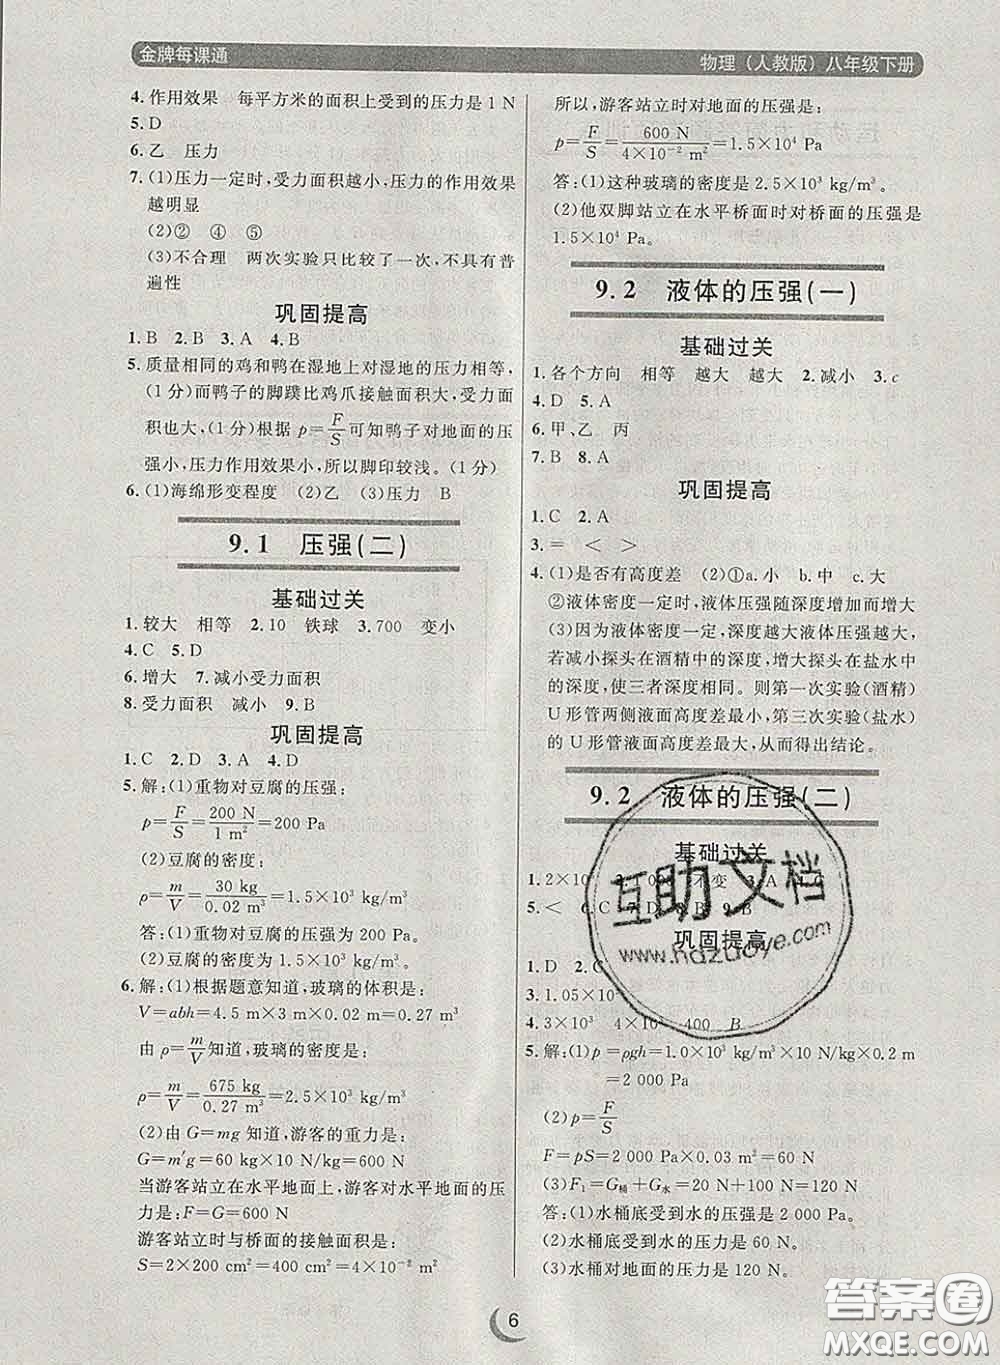 金牌每课通
物理（人教版）八年级下册
4.作用效果　每平方米的面积上受到的压力是1 N
5.D
6.乙　压力
7.(1)压力一定时,受力面积越小,压力的作用效果
越明显
(2)②　④　⑤
(3)不合理　两次实验只比较了一次,不具有普
遍性
巩固提高
1.B　2.B　3.A　4.B
5.质量相同的鸡和鸭在湿地上对湿地的压力相等,
(1分)而鸭子的脚蹼比鸡爪接触面积大,受力面
积也大,(1分)根据 p=F/S 可知鸭子对地面的压
强小,压力作用效果小,所以脚印较浅。(1分)
6.(1)海绵形变程度　(2)乙　(3)压力　B
9.1　压强(二)
基础过关
1.较大　相等　2.10　铁球　3.700　变小
4.C　5.D
6.增大　7.减小受力面积
8.受力面积　减小　9.B
巩固提高
1.C　2.D　3.A　4.D
5.解:(1)重物对豆腐的压强:
p=F/S=200 N/1 m²=200 Pa
(2)豆腐的密度:
ρ=m/V=30 kg/0.02 m³=1.5×10³ kg/m³
答:(1)重物对豆腐的压强为200 Pa。
(2)豆腐的密度为1.5×10³ kg/m³。
6.解:(1)根据题意知道,玻璃的体积是:
V=abh=4.5 m×3 m×0.02 m=0.27 m³
由 ρ=m/V 知道,玻璃的密度是:
ρ=m/V=675 kg/0.27 m³=2.5×10³ kg/m³
(2)由G=mg知道,游客的重力是:
G=m′g=60 kg×10 N/kg=600 N
当游客站立在水平地面上,游客对水平地面的压
力是:F=G=600 N
游客站立时与桥面的接触面积是:
S=2×200 cm²=400 cm²=4×10⁻² m²
所以,游客站立时对地面的压强是:
p=F/S=600 N/4×10⁻² m²=1.5×10⁴ Pa
答:(1)这种玻璃的密度是2.5×10³ kg/m³
(2)他双脚站立在水平桥面时对桥面的压强是
1.5×10⁴ Pa。
9.2　液体的压强(一)
基础过关
1.各个方向　相等　越大　越大　2.减小　3.c
4.D　5.A
6.甲、乙　丙
7.B　8.A
巩固提高
1.C　2.A
3.=　<　>
4.(1)是否有高度差　(2)①a.小　b.中　c.大
②液体密度一定时,液体压强随深度增加而增大
(3)因为液体密度一定,深度越大液体压强越大,
若减小探头在酒精中的深度,增大探头在盐水中
的深度,使三者深度相同。则第一次实验(酒精)
U形管两侧液面高度差最小,第三次实验(盐水)
的U形管液面高度差最大,从而得出结论。
9.2　液体的压强(二)
基础过关
1.2×10　不变　3.A　4.C
5.<　6.C　7.D　8.B　9.B
巩固提高
1.D　2.C
3.1.05×10
4.3×10³　4×10　400　B
5.解:(1)p=ρgh=1.0×10³ kg/m³×10 N/kg×0.2 m
=2 000 Pa
(2)p=F/S
F=pS=2 000 Pa×0.03 m²=60 N
(3)F₁=G桶+G水=20 N+100 N=120 N
答:(1)水桶底受到水的压强是2 000 Pa。
(2)水桶底受到水的压力是60 N。
(3)水桶对地面的压力是120 N。
互助文档
www.hdzuoye.com
6
答案圈
MXQE.COM